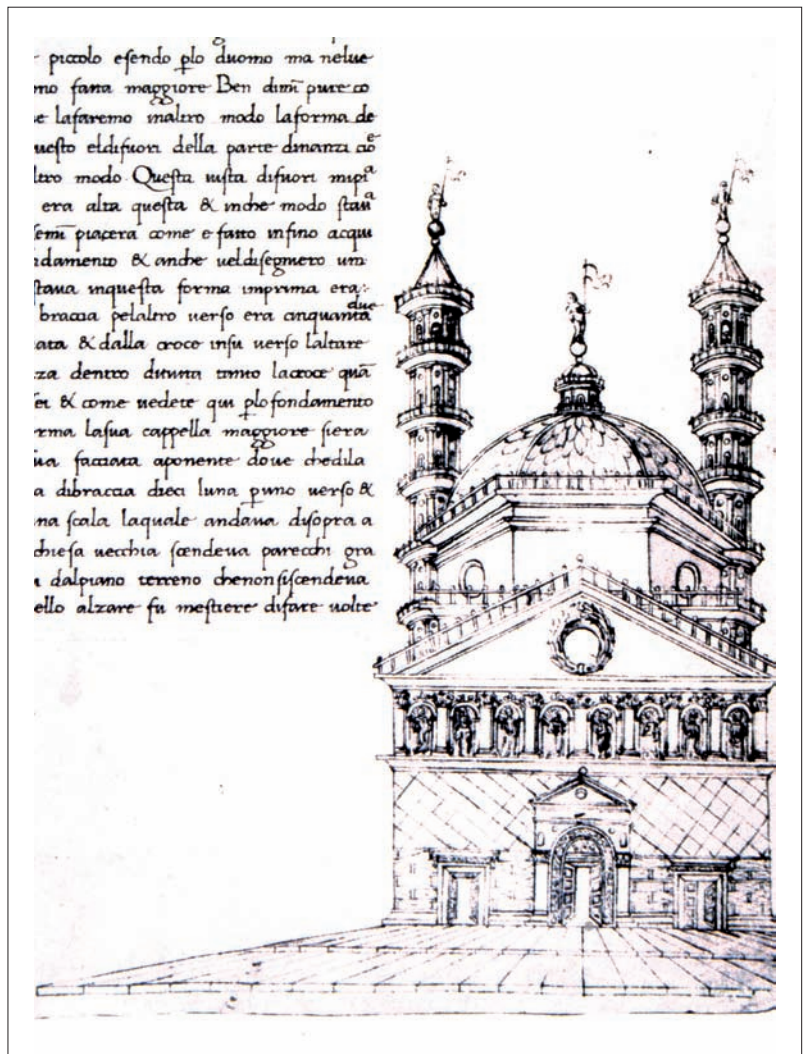 piccolo esendo ꝑlo duomo ma nelue
no fatta maggiore Ben dimī pure co
e lafaremo inaltro modo laforma de
uesto eldifuori della parte dinanzi cioe
ltro modo Questa uista difuori mipia
era alta questa & inche modo staua
semī piacera come e fatto infino acqui
ndamento & anche ueldisegnero un
staua inquesta forma imprima era:
braccia pelaltro uerso era cinquanta due
ata & dalla croce insu uerso laltare
za dentro diuina tanto lacroce quā
sei & come uedete qui ꝑlo fondamento
rma Lasua cappella maggiore siera
ua facciata aponente doue chedila
a dibraccia dieci luna ꝑuno uerso &
na scala laquale andaua disopra a
chiesa uecchia scendeua parecchi gra
dalpiano terreno chenonsiscendeua
ello alzare fu mestiere difare uolte